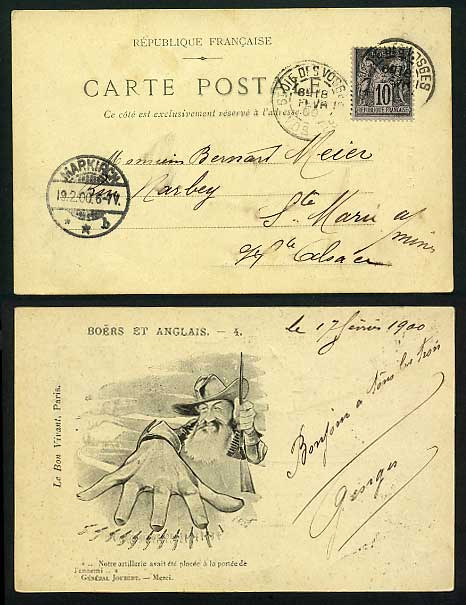 RÉPUBLIQUE FRANÇAISE
CARTE POST
Ce côté est exclusivement réservé à l'adresse
ST DIÉ DES VOSGES
10
REPUBLIQUE FRANÇAISE
MARKIRCH
19.2.00.6-7V.
Monsieur Bernard Meier
Ste Marie a/ mines
Hte Alsace
BOËRS ET ANGLAIS. — 4.
le 17 février 1900
Bonjour a tous les trois
Georges
Le Bon Vivant, Paris.
« .. Notre artillerie avait été placée à la portée de
l'ennemi .. »
GÉNÉRAL JOUBERT. — Merci.